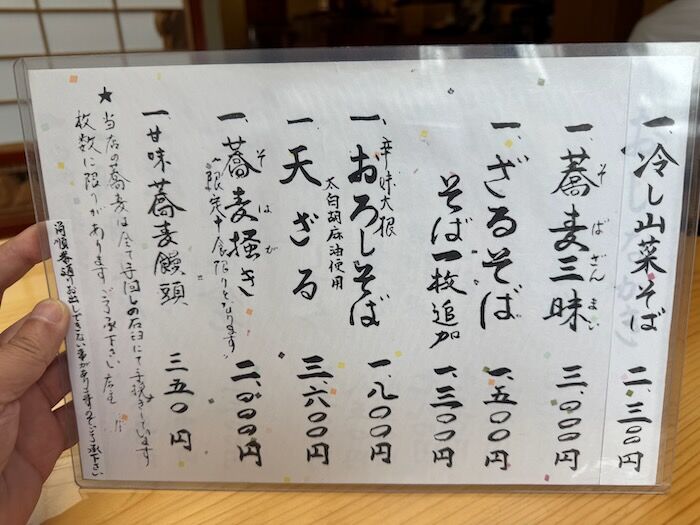 一、冷し山菜そば 二、三〇〇円
一、蕎麦三昧 三、〇〇〇円
そばざんまい
一、ざるそば 一、五〇〇円
そば一枚追加 一、三〇〇円
辛味大根
一、おろしそば 一、八〇〇円
太白胡麻油使用
一、天ざる 三、六〇〇円
一、蕎麦掻き 二、〇〇〇円
そばがき
限定十食限りとなります
一、甘味 蕎麦饅頭 三五〇円
★当店の蕎麦は全て手回しの石臼にて手挽きしています
枚数に限りがあります ご了承下さい 店主
尚順番通りお出しできない事がありますのでご了承下さい